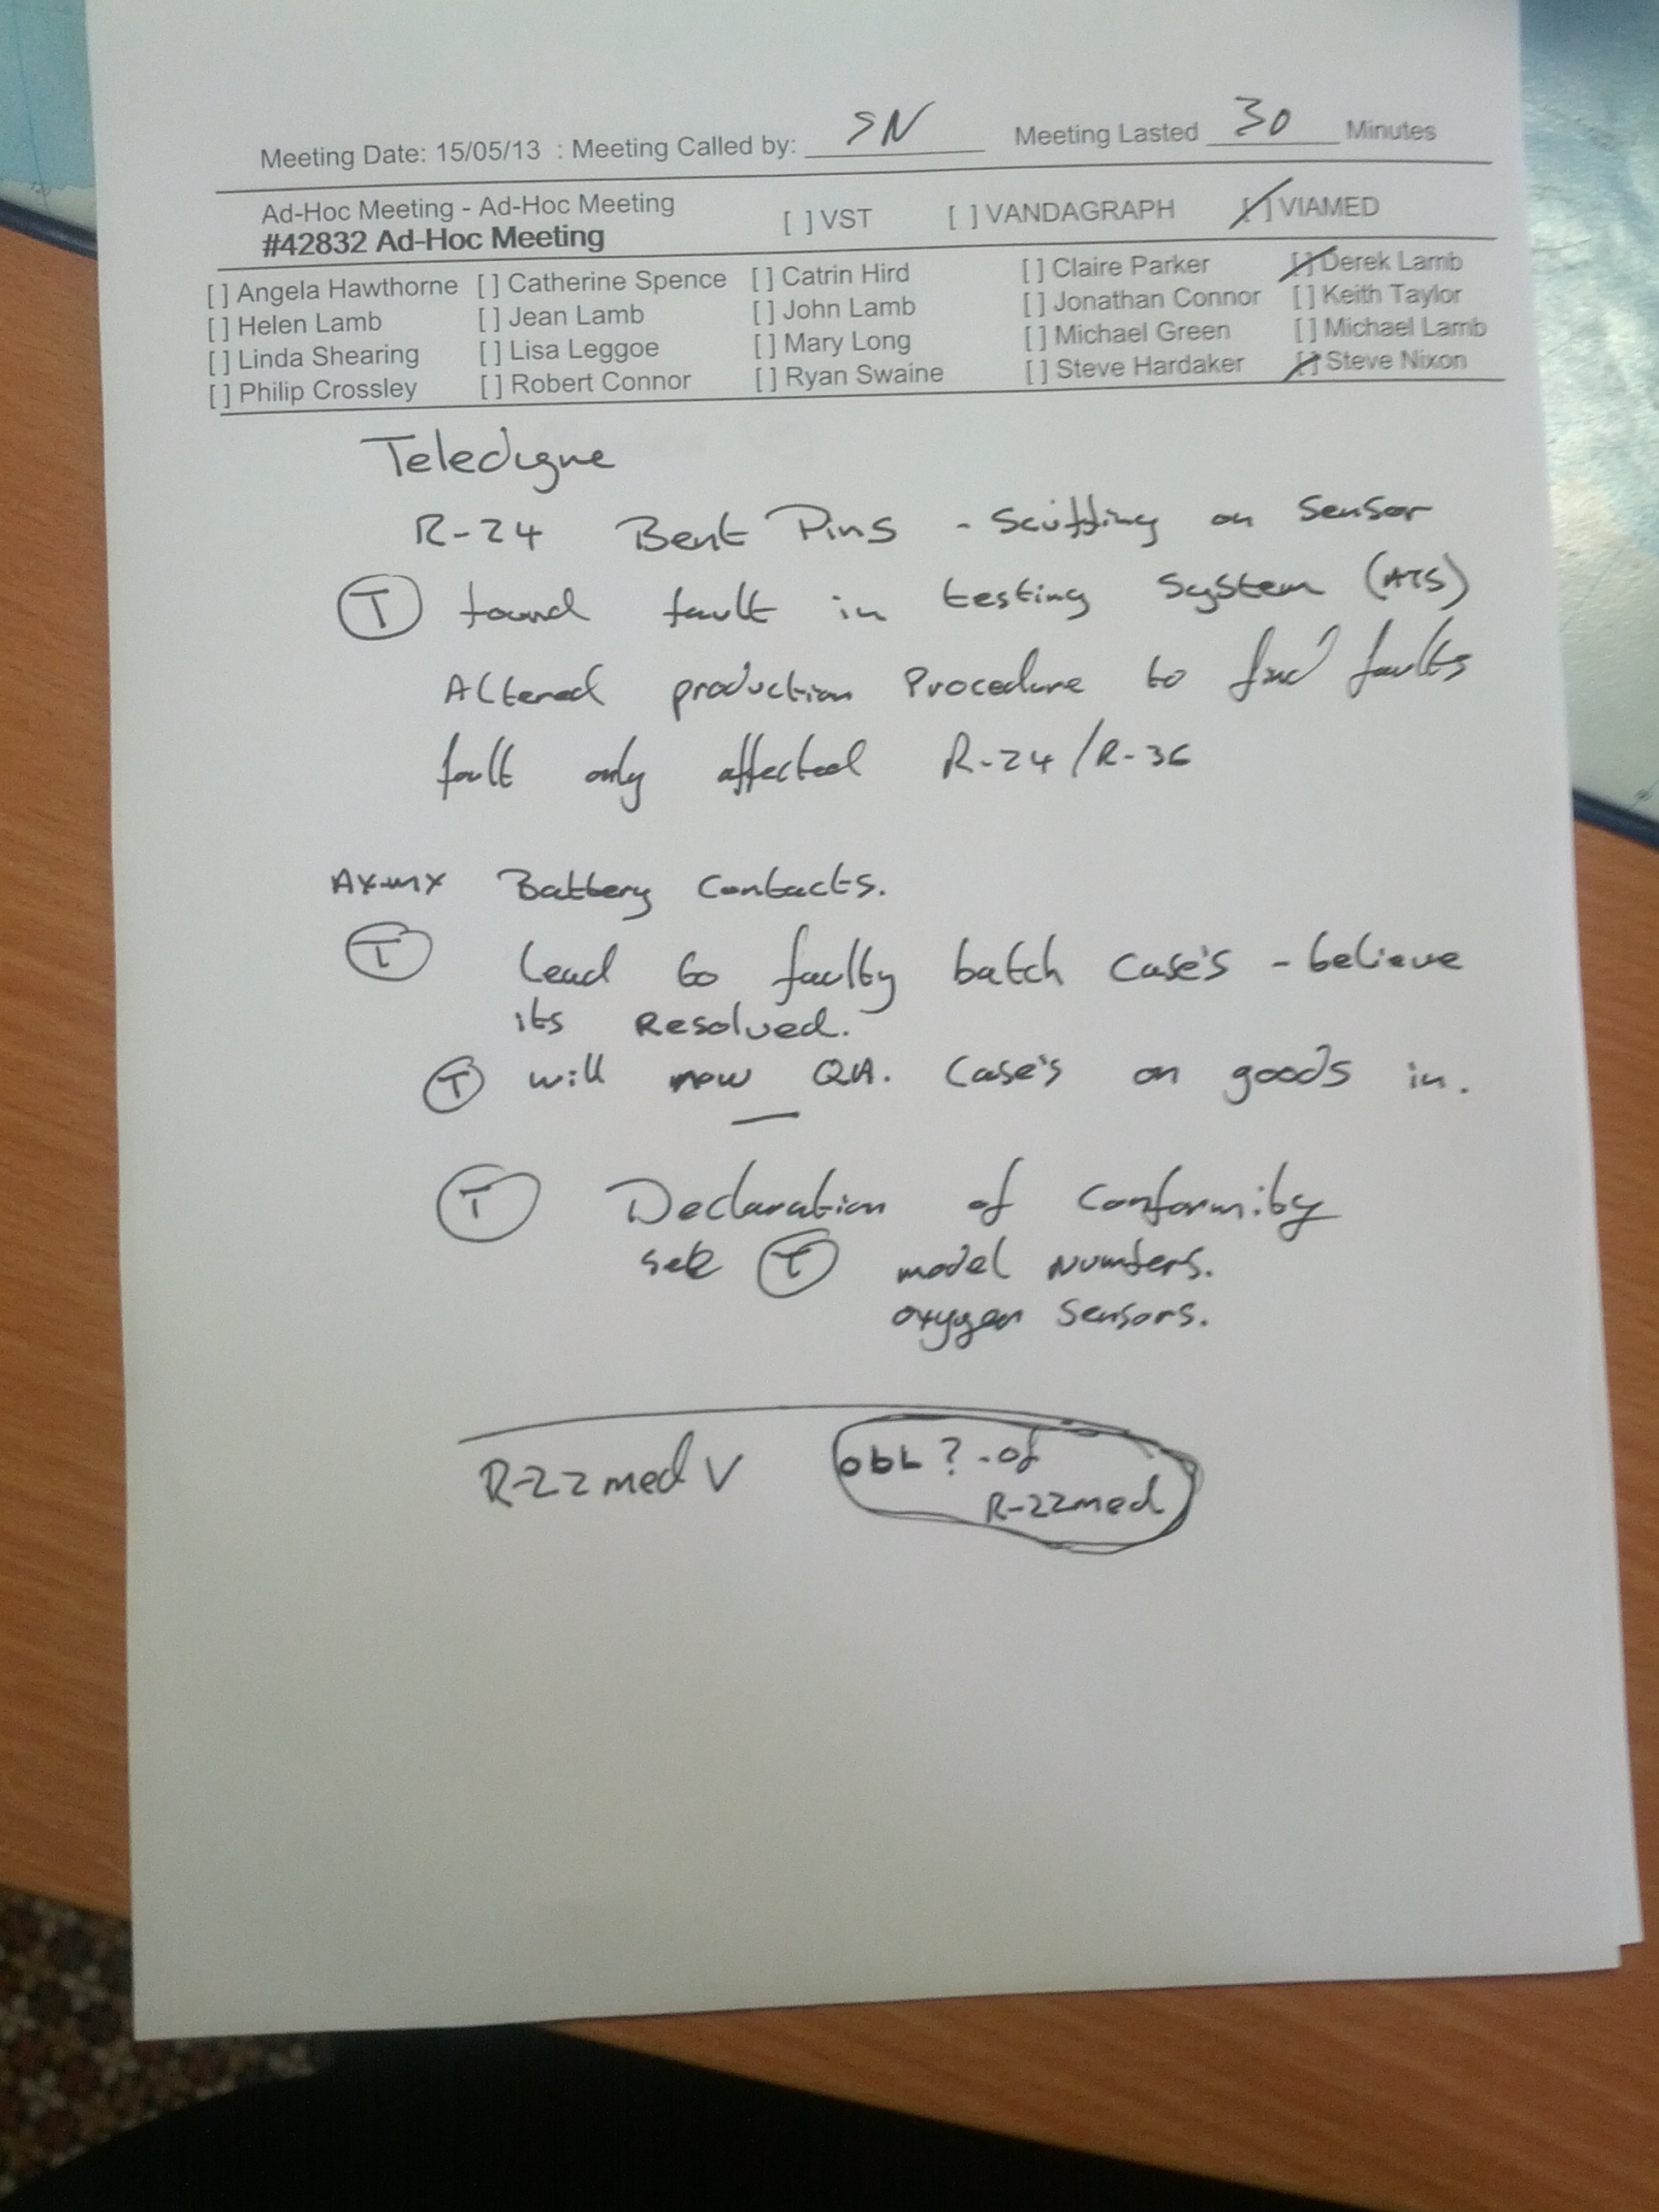 Meeting Date: 15/05/13 : Meeting Called by: SN Meeting Lasted 30 Minutes
Ad-Hoc Meeting - Ad-Hoc Meeting [ ] VST [ ] VANDAGRAPH [/] VIAMED
#42832 Ad-Hoc Meeting
[ ] Angela Hawthorne [ ] Catherine Spence [ ] Catrin Hird [ ] Claire Parker [/] Derek Lamb
[ ] Helen Lamb [ ] Jean Lamb [ ] John Lamb [ ] Jonathan Connor [ ] Keith Taylor
[ ] Linda Shearing [ ] Lisa Leggoe [ ] Mary Long [ ] Michael Green [ ] Michael Lamb
[ ] Philip Crossley [ ] Robert Connor [ ] Ryan Swaine [ ] Steve Hardaker [/] Steve Nixon
Teledyne
R-24 Bent Pins - Scuffing on Sensor
T found fault in testing System (ATS)
Altered production Procedure to find faults
fault only affected R-24/R-36
Battery Contacts.
T Lead to faulty batch Case's - believe
its Resolved.
T will now QA. Case's on goods in.
T Declaration of Conformity
T model Numbers.
oxygen Sensors.
R-22med V ObL? - of
R-22med